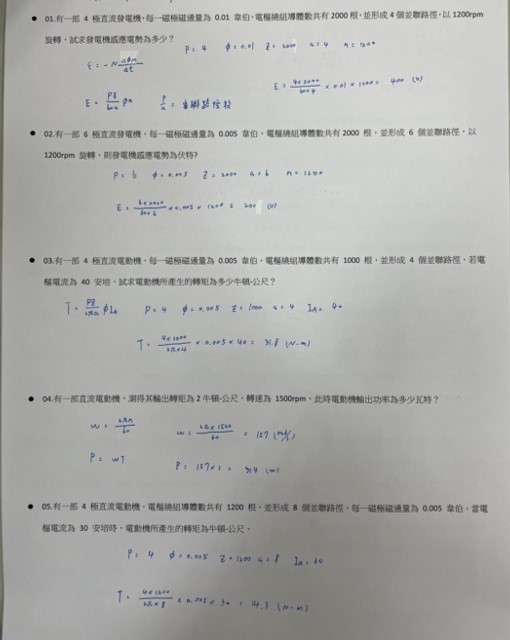 01.有一部 4 極直流發電機,每一磁極磁通量為 0.01 韋伯,電樞繞組導體數共有 2000 根,並形成 4 個並聯路徑,以 1200rpm
旋轉,試求發電機感應電勢為多少?
P = 4 φ = 0.01 Z = 2000 a = 4 n = 1200
E = -N Δφn/Δt
E = PZ/60a φn
E = 4×2000/60×4 × 0.01 × 1200 = 400 (V)
02.有一部 6 極直流發電機,每一磁極磁通量為 0.005 韋伯,電樞繞組導體數共有 2000 根,並形成 6 個並聯路徑,以
1200rpm 旋轉,則發電機感應電勢為伏特?
P = 6 φ = 0.005 Z = 2000 a = 6 n = 1200
E = 6×2000/60×6 × 0.005 × 1200 = 200 (V)
03.有一部 4 極直流電動機,每一磁極磁通量為 0.005 韋伯,電樞繞組導體數共有 1000 根,並形成 4 個並聯路徑,若電
樞電流為 40 安培,試求電動機所產生的轉矩為多少牛頓-公尺?
T = PZ/2πa φIa P = 4 φ = 0.005 Z = 1000 a = 4 Ia = 40
T = 4×1000/2π×4 × 0.005 × 40 = 31.8 (N-m)
04.有一部直流電動機,測得其輸出轉矩為 2 牛頓-公尺,轉速為 1500rpm,此時電動機輸出功率為多少瓦特?
w = 2πn/60 w = 2π×1500/60 = 157 (rad/s)
P = wT P = 157×2 = 314 (W)
05.有一部 4 極直流電動機,電樞繞組導體數共有 1200 根,並形成 8 個並聯路徑,每一磁極磁通量為 0.005 韋伯,當電
樞電流為 30 安培時,電動機所產生的轉矩為牛頓-公尺。
P = 4 φ = 0.005 Z = 1200 a = 8 Ia = 30
T = 4×1200/2π×8 × 0.005 × 30 = 14.3 (N-m)